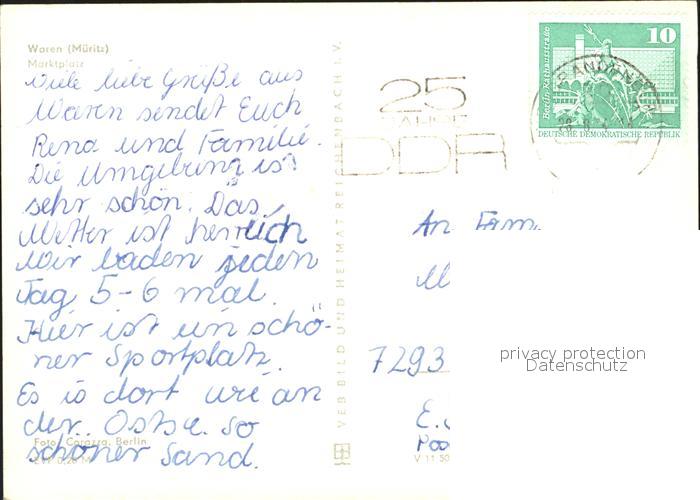 Waren (Müritz)
Marktplatz
Viele liebe Grüße aus
Waren sendet Euch
Rena und Familie.
Die Umgebung is
sehr schön. Das
Wetter ist herrlich
Wir baden jeden
Tag 5-6 mal.
Hier ist ein schö-
ner Sportplatz.
Es is dort wie an
der Ostse. so
schöner Sand.
Foto: Corazza, Berlin
VEB BILD UND HEIMAT REICHENBACH I. V.
V 11 50
25
JAHRE
DDR
10
Berlin-Rathausstraße
DEUTSCHE DEMOKRATISCHE REPUBLIK
An Fam.
7293
privacy protection
Datenschutz